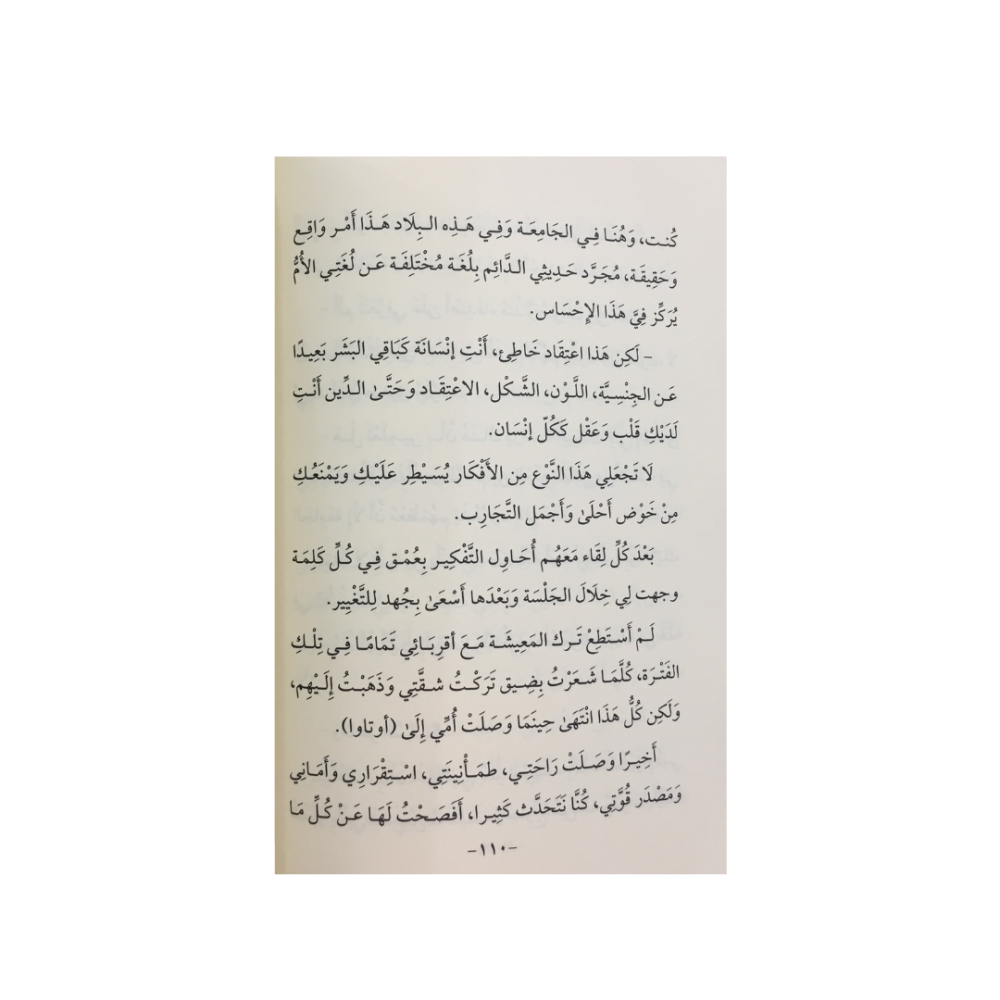 كُنت، وَهُنَا فِي الجَامِعَة وَفِي هَذِه البِلَاد هَذَا أَمْر وَاقِع
وَحَقِيقَة، مُجَرَّد حَدِيثِي الدَّائِم بِلُغَة مُخْتَلِفَة عَن لُغَتِي الأُمُّ
يُرَكِّز فِيَّ هَذَا الإِحْسَاس.
- لَكِن هَذا اعْتِقَاد خَاطِئ، أَنْتِ إنْسَانَة كَبَاقِي البَشَر بَعِيدًا
عَن الجِنْسِيَّة، اللَّوْن، الشَّكْل، الاعْتِقَاد وَحَتَّىٰ الدِّين أَنْتِ
لَدَيْكِ قَلْب وَعَقْل كَكُلّ إنْسَان.
لَا تَجْعَلِي هَذَا النَّوْع مِن الأَفْكَار يُسَيْطِر عَلَيْكِ وَيَمْنَعُكِ
مِنْ خَوْض أَحْلَىٰ وَأَجْمَل التَّجَارِب.
بَعْدَ كُلِّ لِقَاء مَعَهُم أُحَاوِل التَّفْكِير بِعُمْق فِي كُلِّ كَلِمَة
وجهت لِي خِلَالَ الجَلْسَة وَبَعْدَها أَسْعَىٰ بِجُهد لِلتَّغْيِير.
لَمْ أَسْتَطِعْ تَرك المَعِيشَة مَعَ أقرِبَائِي تَمَامًا فِي تِلْكِ
الفَتْرَة، كُلَّمَا شَعَرْتُ بِضِيق تَرَكْتُ شقَّتِي وَذَهَبْتُ إِلَيْهِم،
وَلَكِن كُلُّ هَذَا انْتَهَىٰ حِينَمَا وَصَلَتْ أُمِّي إِلَىٰ (أوتاوا).
أَخِيرًا وَصَلَتْ رَاحَتِي، طمَأْنِينَتِي، اسْتِقْرَارِي وَأَمَانِي
وَمَصْدَر قُوَّتِي، كُنَّا نَتَحَدَّث كَثِيرا، أَفْصَحْتُ لَهَا عَنْ كُلِّ مَا
-١١٠-